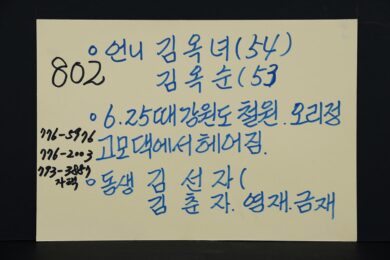 802
○ 언니 김옥녀(54)
김옥순(53
○ 6.25때 강원도 철원. 오리정
고모댁에서 헤어짐.
○ 동생 김선자(
김춘자. 영재. 금재
776-5976
776-2003
773-3887
자택